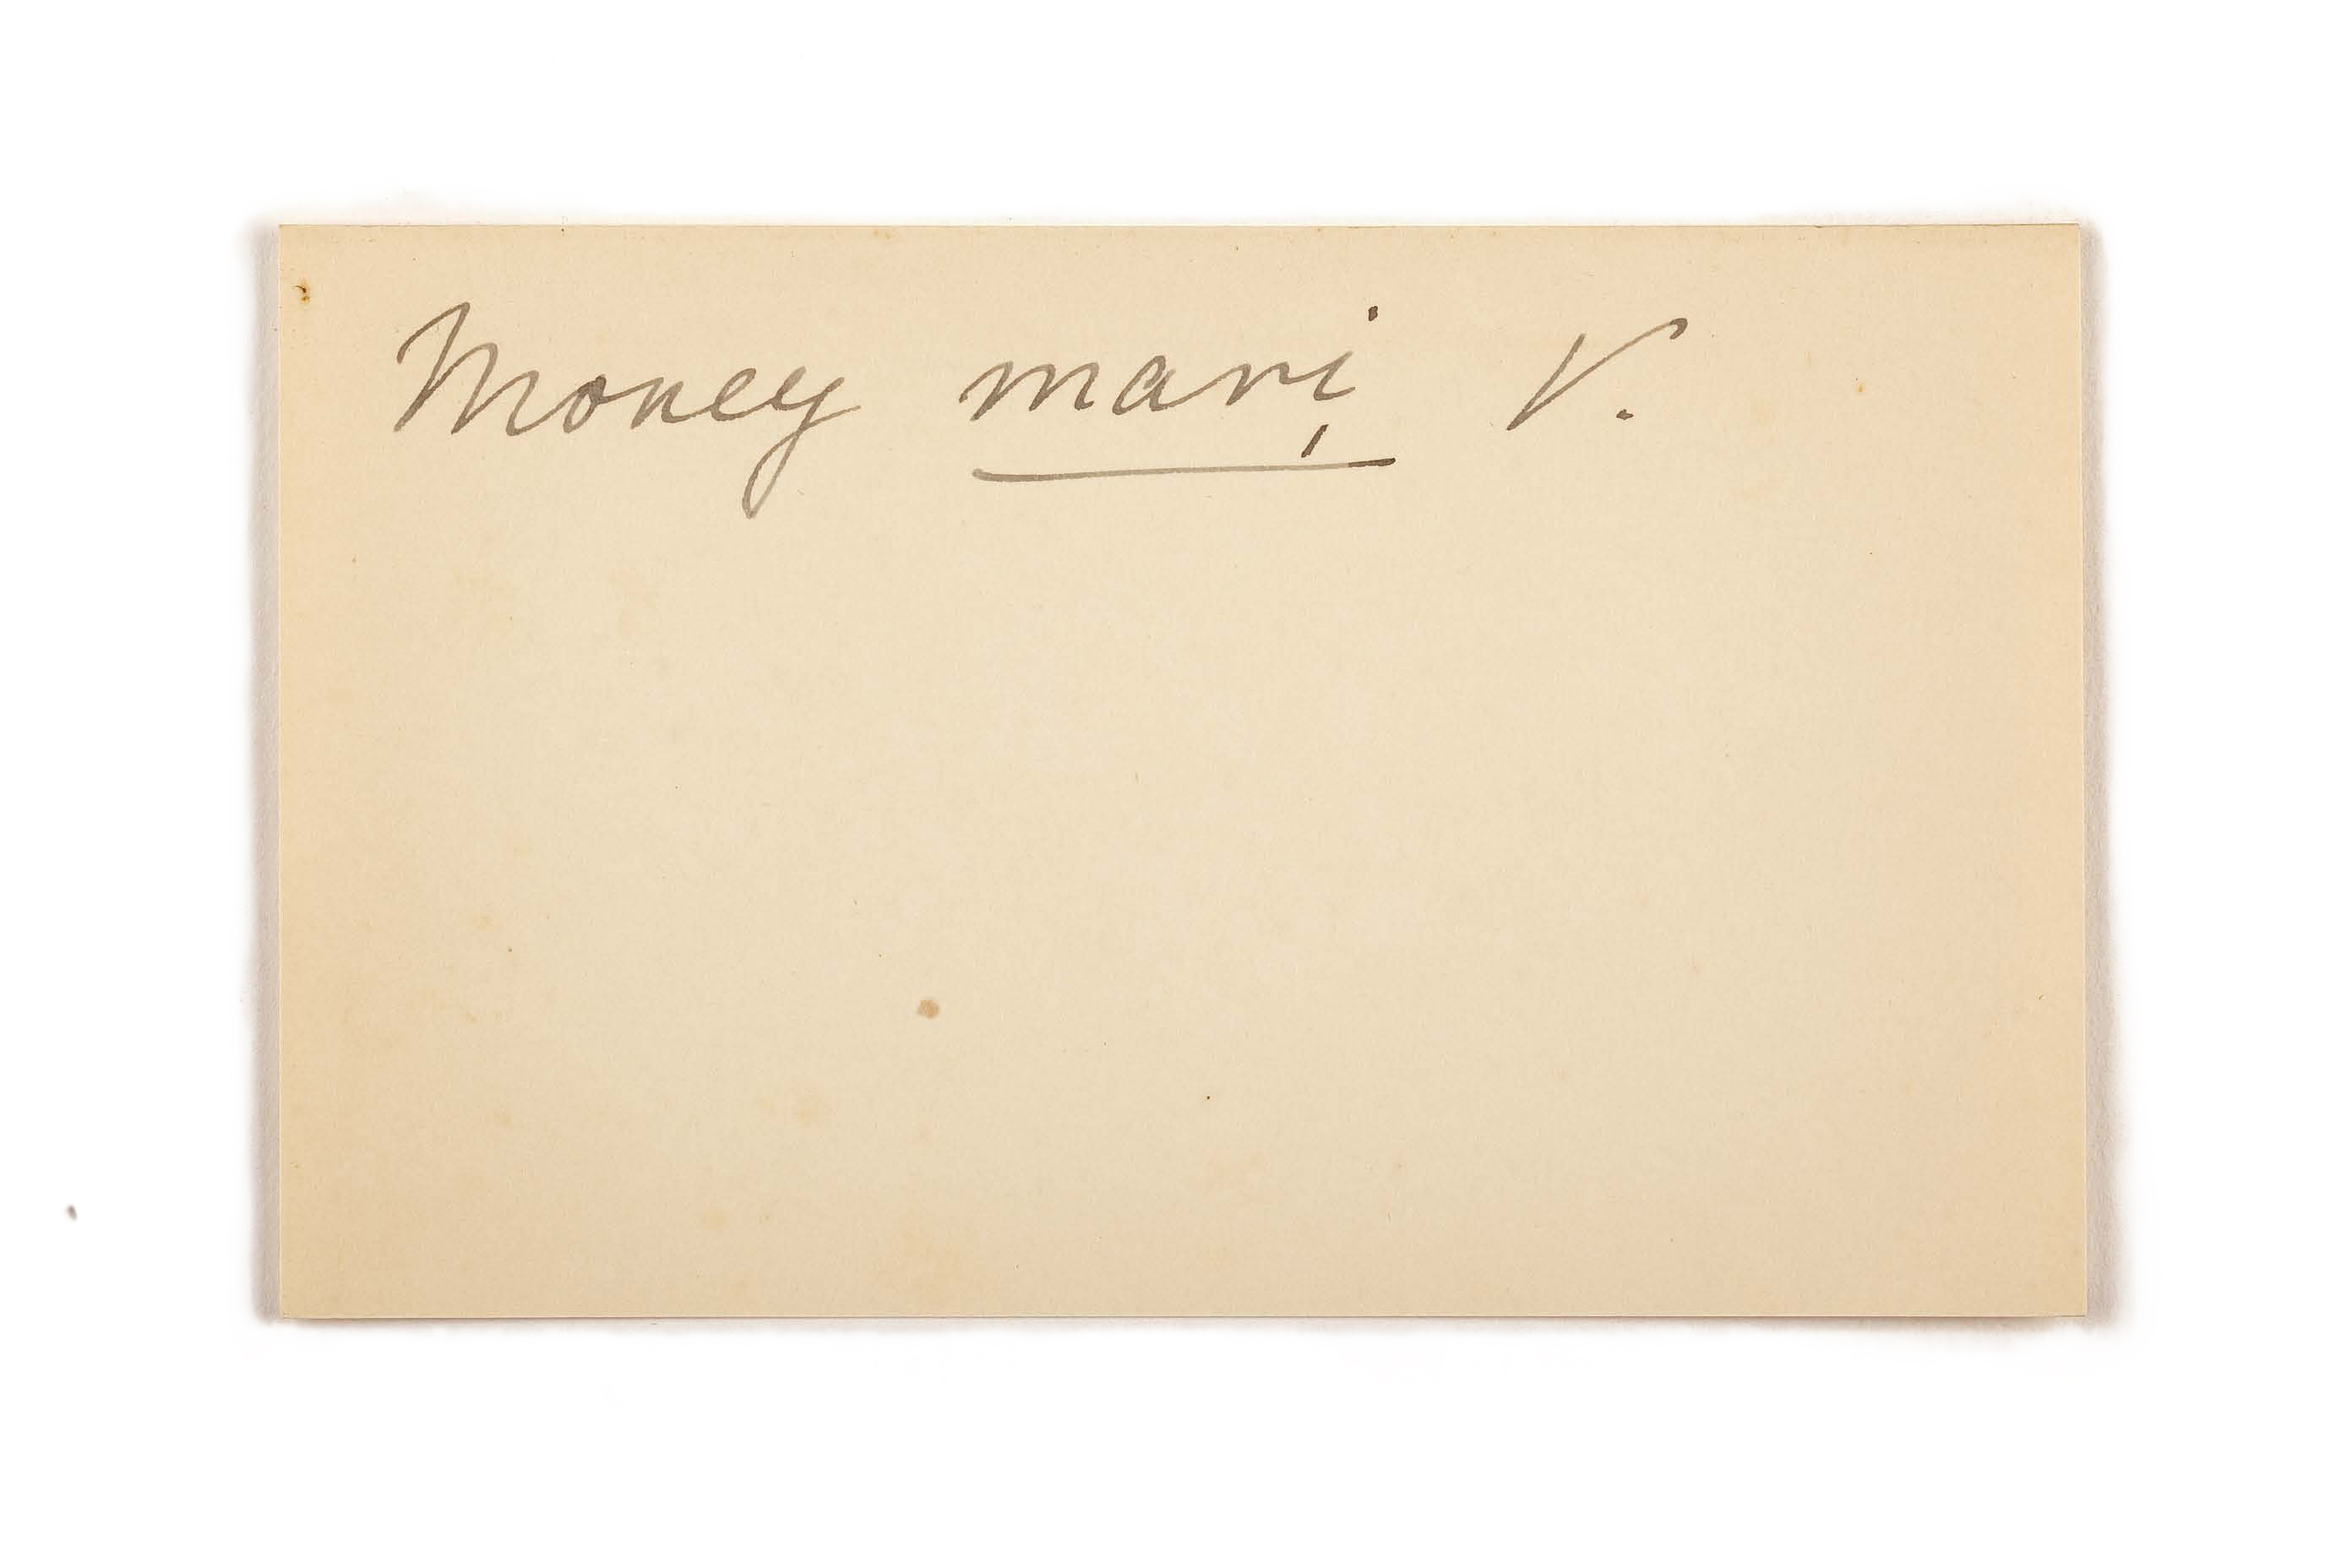 Money mari V.